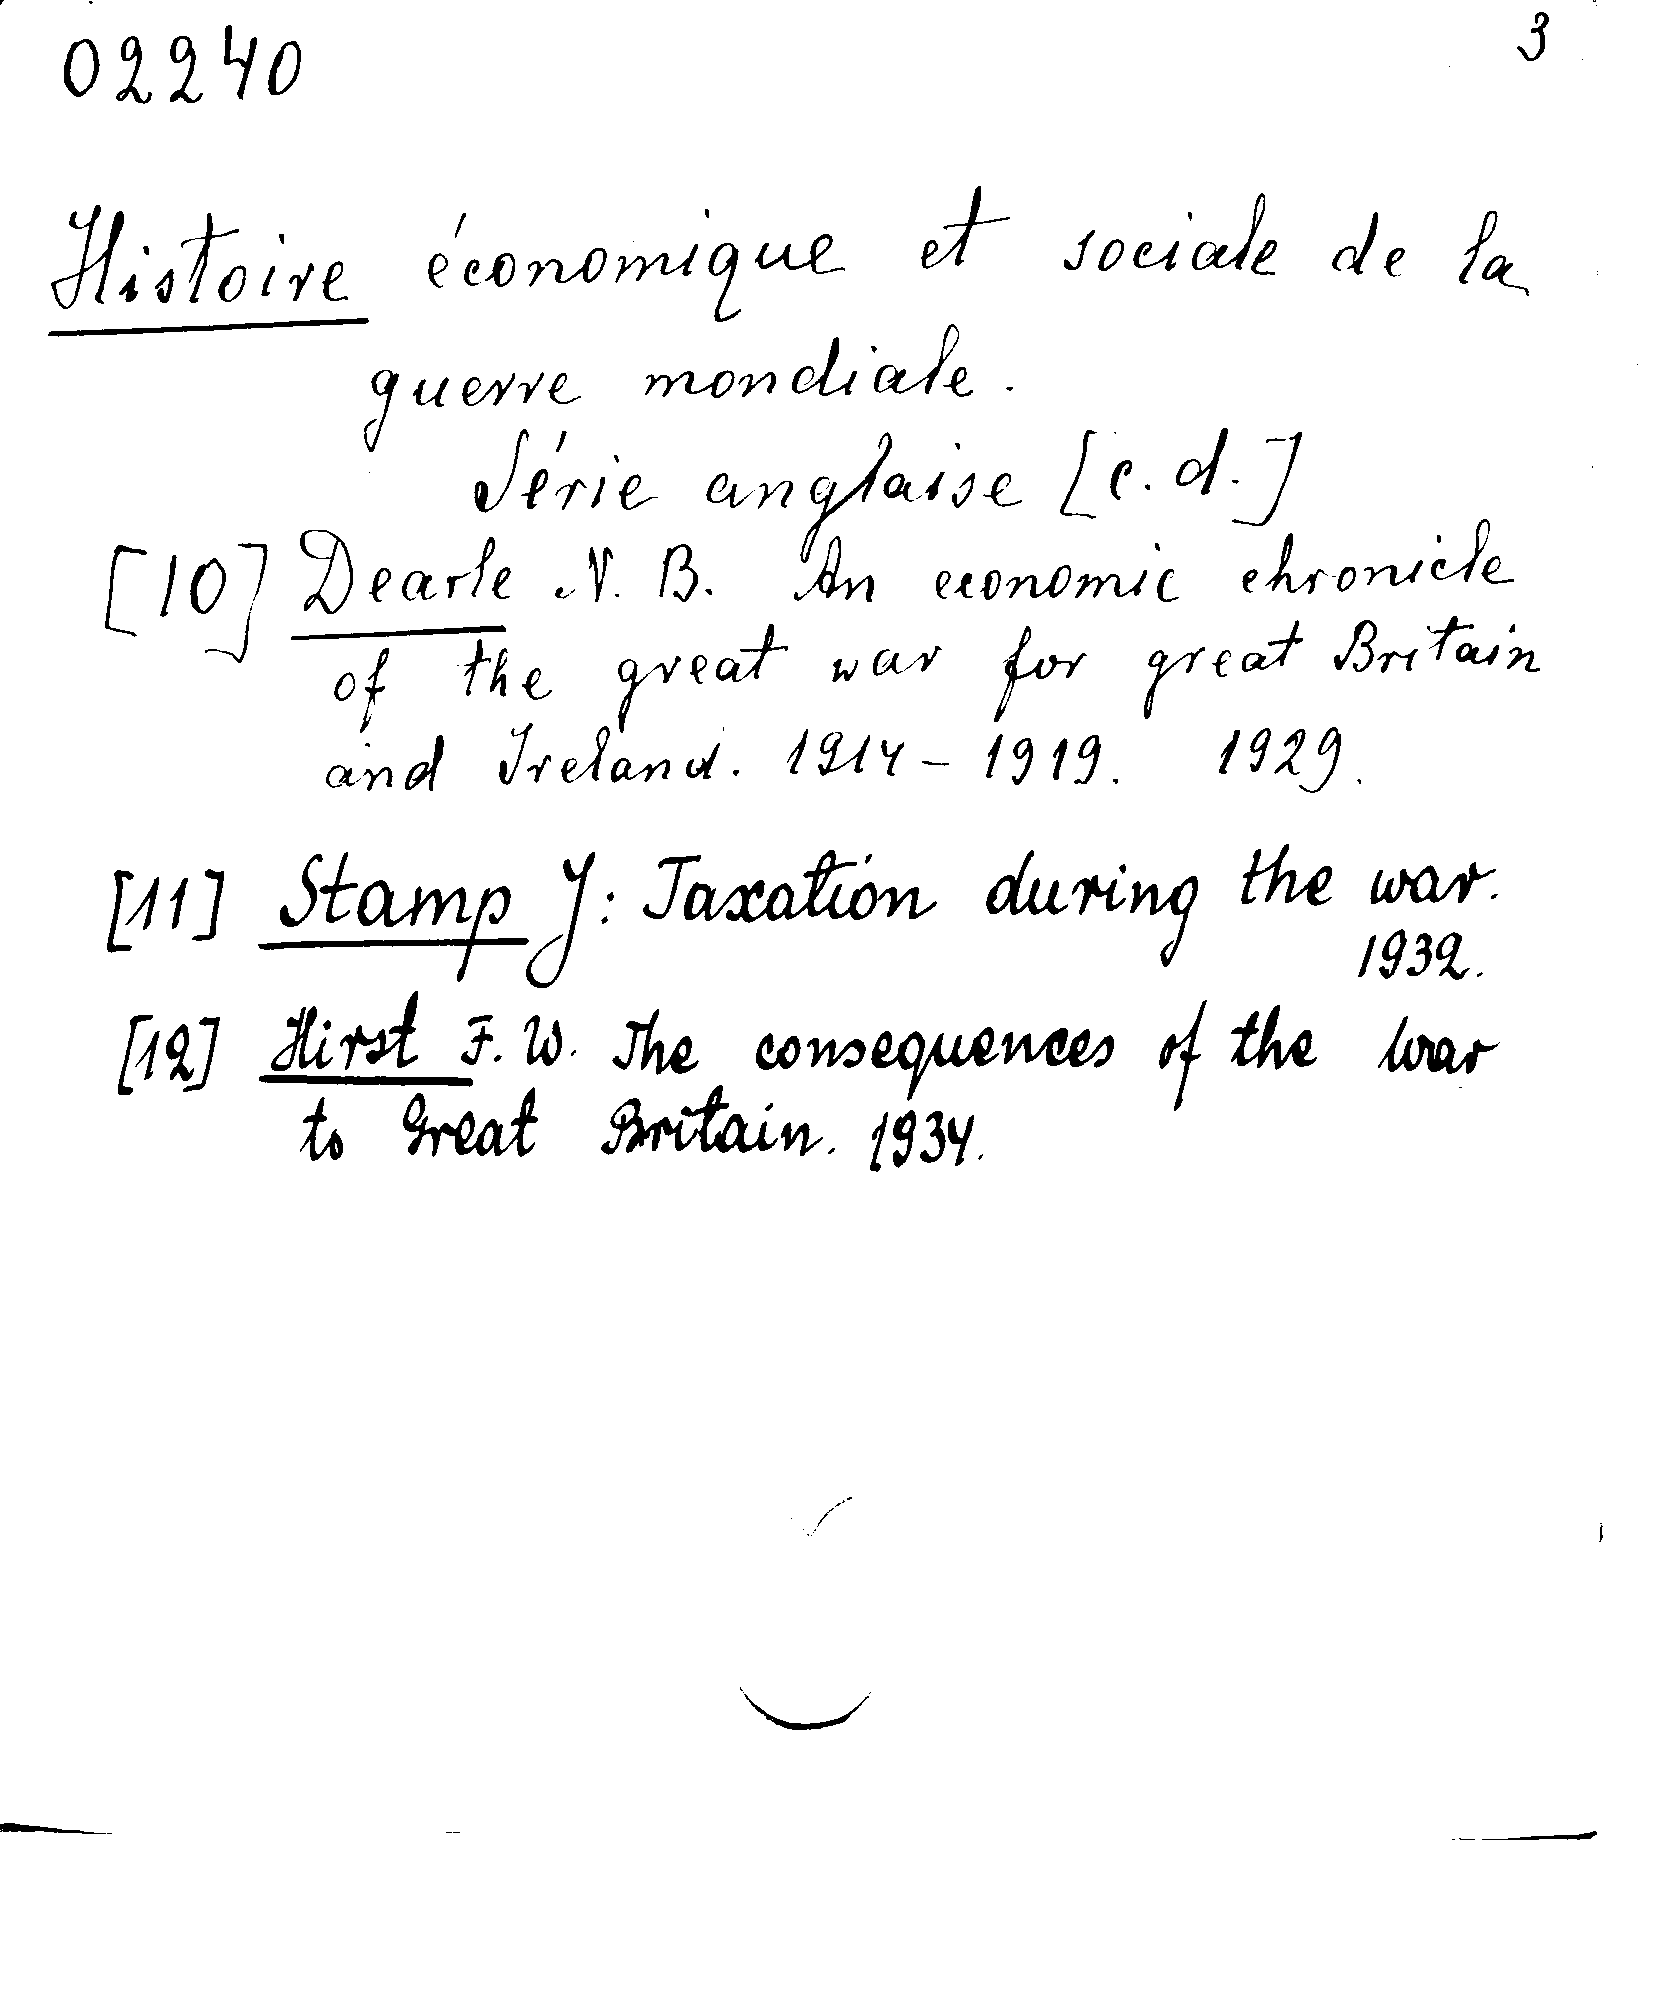 02240
3
Histoire économique et sociale de la
guerre mondiale.
Série anglaise [c.d.]
[10] Dearle N. B. An economic chronicle
of the great war for great Britain
and Ireland. 1914-1919. 1929.
[11] Stamp J: Taxation during the war.
1932.
[12] Hirst F. W. The consequences of the war
to Great Britain. 1934.